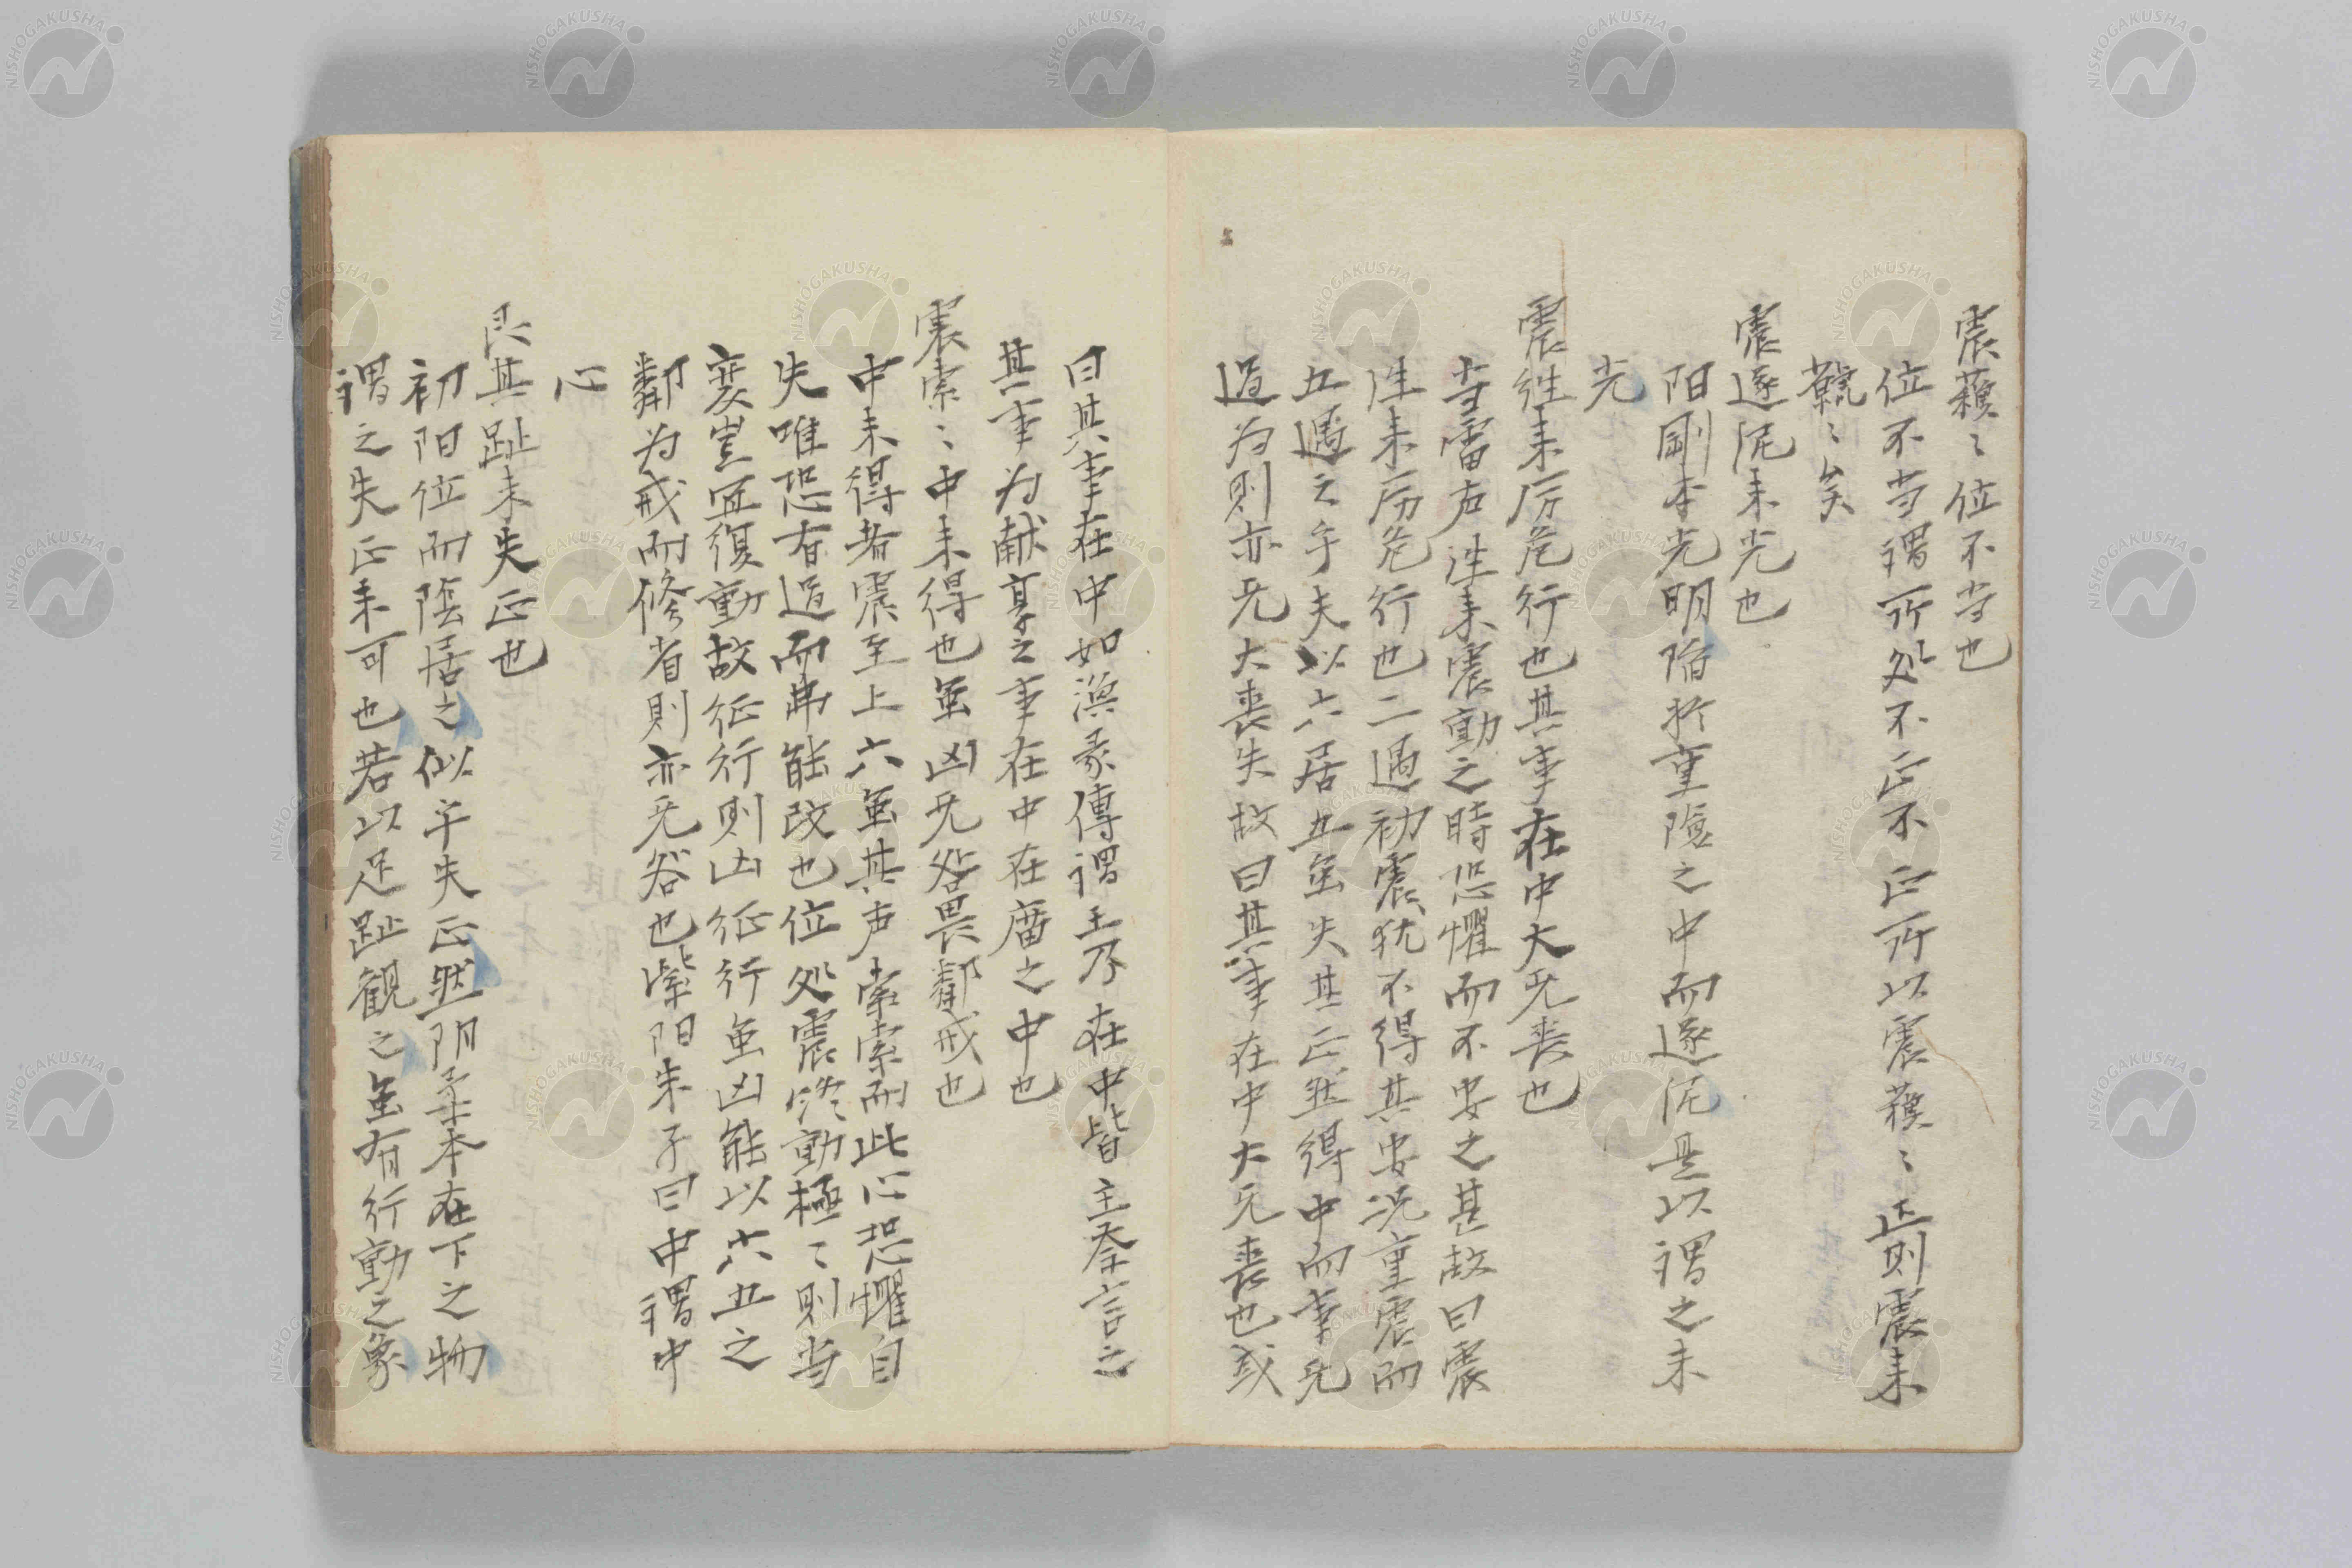 震蘓〻位不当也
位不当謂所処不正不正所以震蘓〻正則震来
虩〻矣
震遂泥未光也
阳剛本光明陷於重險之中而遂泥是以謂之未
光
震往来厉危行也其事在中大无丧也
当雷声往来震動之時恐懼而不安之甚故曰震
往来厉危行也二遇初震犹不得其安况重震而
五遇之乎夫以六居五虽失其正然得中而事无
过为則亦无大丧失故曰其事在中大无丧也或
曰其事在中如渙彖傳謂王乃在中皆主祭言之
其事为献享之事在中在庿之中也
震索〻中未得也虽凶无咎畏鄰戒也
中未得者震至上六虽其声索索而此心恐懼自
失唯恐有过而弗能改也位処震終動極〻則当
変豈宜復動故征行則凶征行虽凶能以六五之
鄰为戒而修省則亦无咎也紫阳朱子曰中謂中
心
艮其趾未失正也
初阳位而陰居之似乎失正然阴柔本在下之物
謂之失正未可也若以足趾観之虽有行動之象
NISHOGAKUSHA